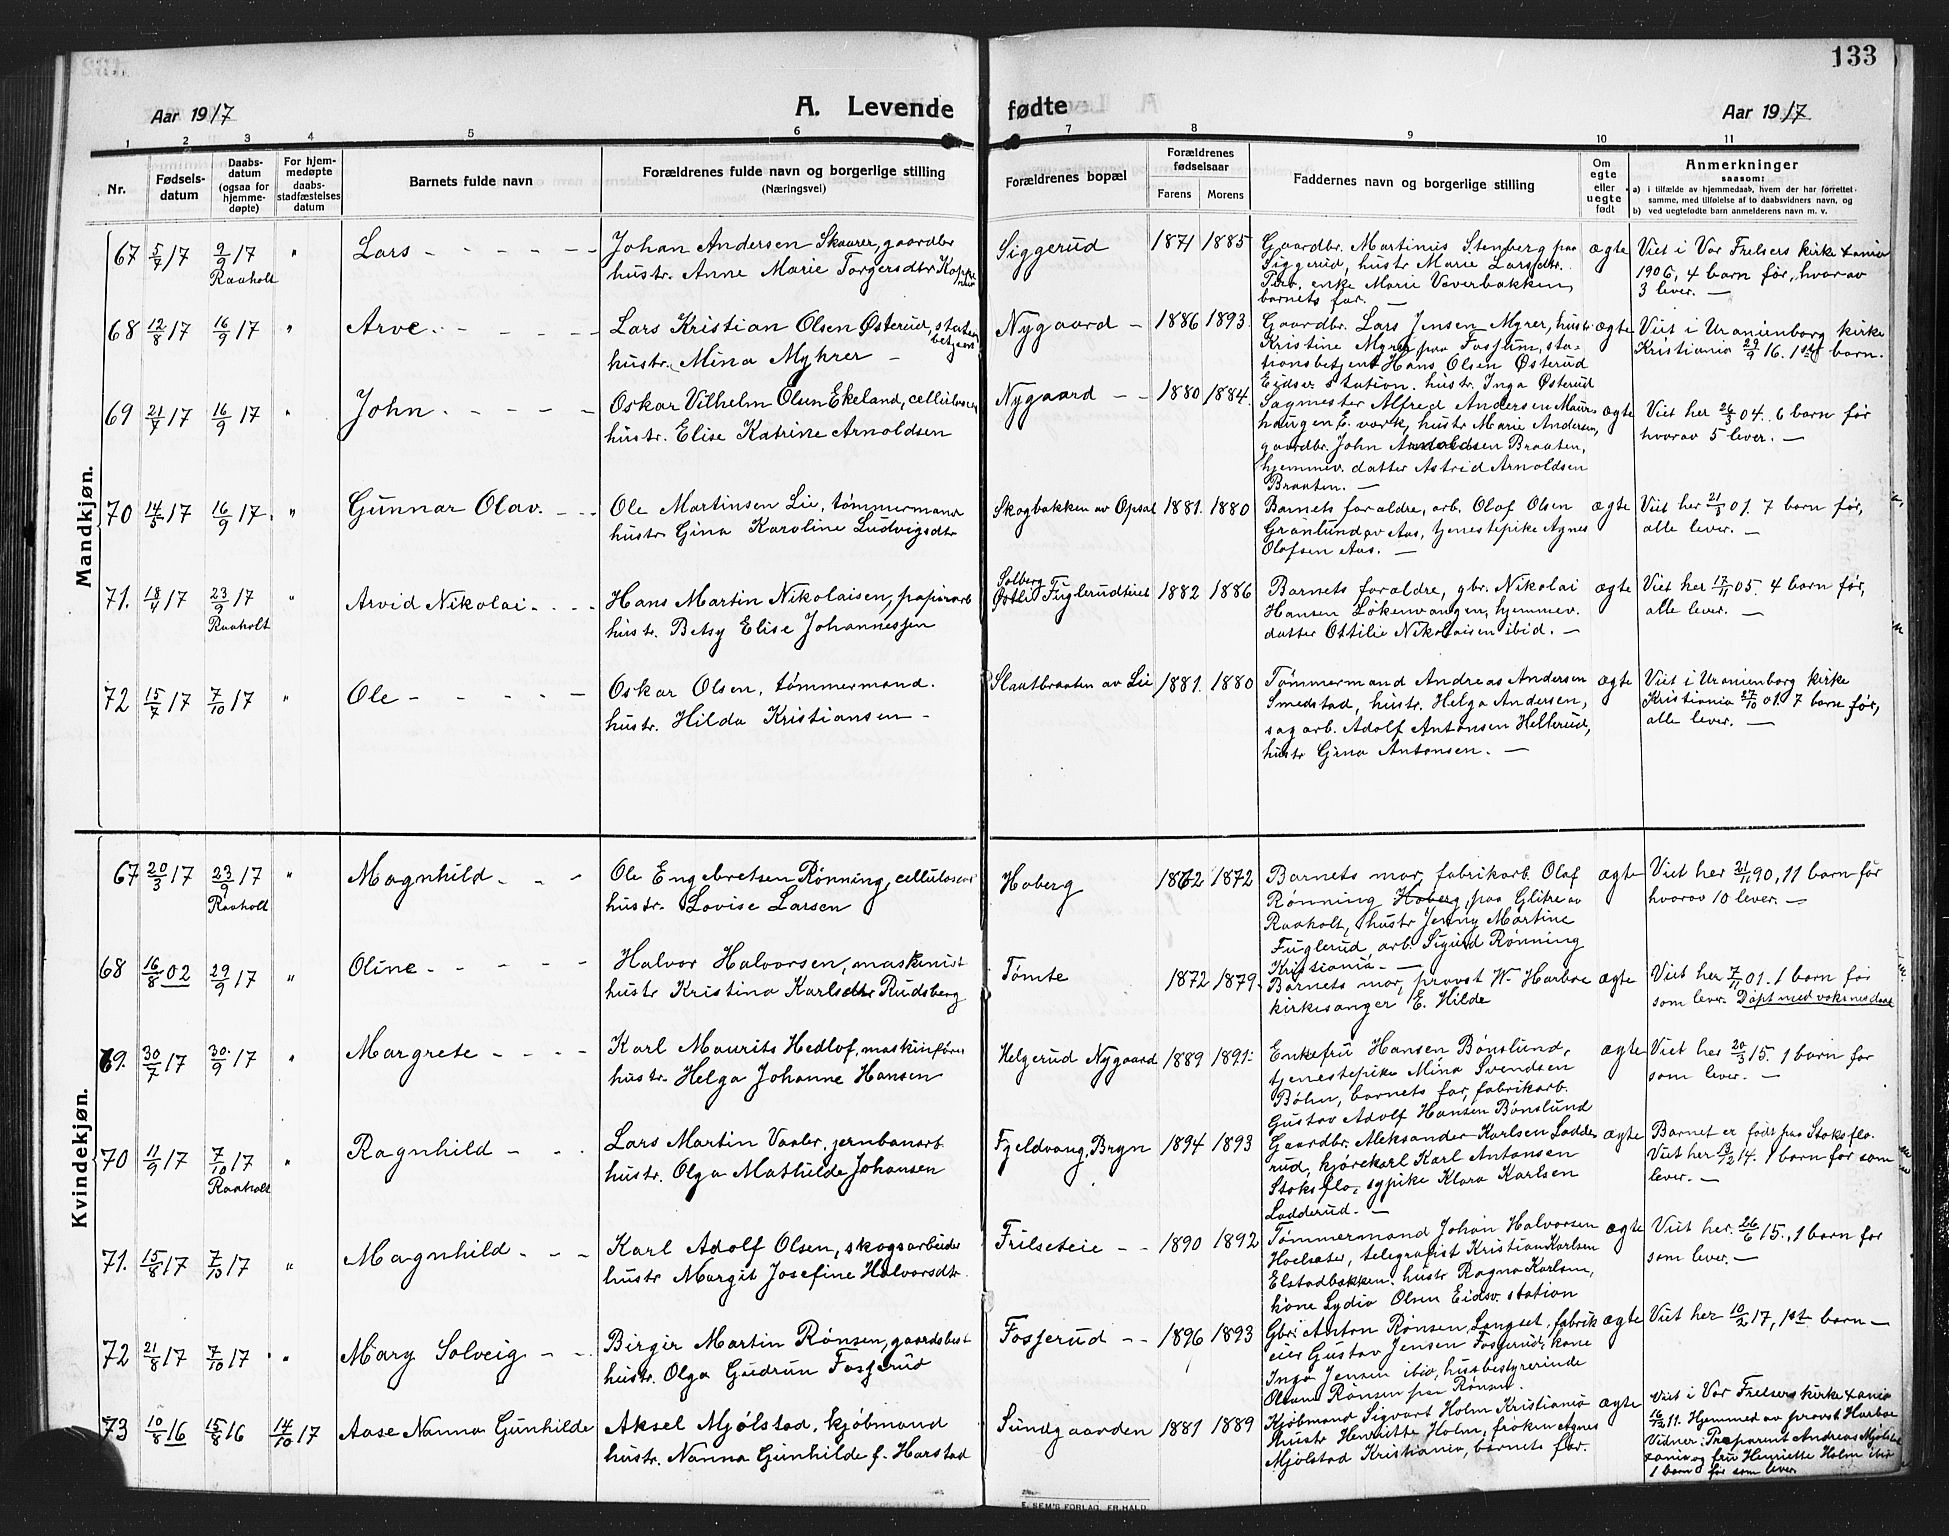 133
Aar 1917
A. Levende fødte
Aar 1917
1 2 3 4 5 6 7 8 9 10 11
Nr.
Fødsels-
datum
Daabs-
datum
(ogsaa for
hjemme-
døpte)
For hjem-
medøpte
daabs-
stadfæstelses
datum
Barnets fulde navn
Forældrenes fulde navn og borgerlige stilling
(Næringsvei)
Forældrenes bopæl
Forældrenes
fødselsaar
Farens Morens
Faddernes navn og borgerlige stilling
Om
egte
eller
uegte
født
Anmerkninger
saasom:
a) i tilfælde av hjemmedaab, hvem der har forrettet
samme, med tilføielse af to daabsvidners navn, og
b) ved uegtefødte barn anmelderens navn m. v.
Mandkjøn.
67 5/7 17 9/9 17 " Lars
Raaholt
Johan Andersen Skaarer, gaardbr
hustr. Anne Marie Torgersdtr
Siggerud 1871 1885
Gaardbr. Martinus Stenberg paa
Siggerud, hustr Marie Larsdtr.
enke Marie Veverbakken,
barnets far. —
ægte
Viet i Vor Frelsers kirke Xania
1906, 4 barn før, hvorav
3 lever. —
68 12/8 17 16/9 17 " Arve
Lars Kristian Olsen Østerud,
hustr. Mina Myhrer —
Nygaard — 1886 1893
Gaardbr. Lars Jensen Myrer, hustr
Kristine Myrer paa Fosjum, sta-
tionsbetjent Hans Olsen Østerud
Eidsv. station. hustr. Inga Østerud
ægte
Viet i Uranienborg kirke
Kristiania 29/9 16. 1ste barn.
69 21/7 17 16/9 17 " John
Oskar Vilhelm Olsen Ekeland, cellulosearb
hustr. Elise Katrine Arnoldsen
Nygaard — 1880 1884.
Sagmester Alfred Andersen Maur-
haugen E. verk, hustr Marie Andersen,
gaardbr. John Arnoldsen Braaten,
hjemmev. datter Astrid Arnoldsen
Braaten. —
ægte
Viet her 26/3 04. 6 barn før
hvorav 5 lever. —
70 14/5 17 16/9 17. " Gunnar Olav.
Ole Martinsen Lie, tømmermand
hustr. Gina Karoline Ludvigsdtr
Skogbakken av Opsal 1881. 1880
Barnets foraldre, arb. Olaf Olsen
Grønlund av Aas, tjenestepike Agnes
Olafsen Aas. —
ægte
Viet her 21/3 01. 7 barn før,
alle lever. —
71. 18/4 17 23/9 17 " Arvid Nikolai
Raaholt
Hans Martin Nikolaisen, papirarb
hustr. Betsy Elise Johannessen
Solberg
Østli Fuglerudteiet 1882 1886
Barnets foraldre, gbr. Nikolai
Hansen Løkenvangen, hjemmev.
datter Ottilie Nikolaisen ibid. —
ægte
Viet her 17/11 05. 4 barn før,
alle lever. —
72 15/7 17 7/10 17 " Ole
Oskar Olsen, tømmermand.
hustr. Hilda Kristiansen —
Slaatbraaten av Lie 1881. 1880
Tømmermand Andreas Andersen
Smedstad, hustr. Helga Andersen,
sagarb. Adolf Antonsen Hellerud,
hustr Gina Antonsen. —
ægte
Viet i Uranienborg kirke
Kristiania 27/10 01. 7 barn før,
alle lever. —
Kvindekjøn.
67 20/3 17 23/9 17 " Magnhild
Raaholt
Ole Engebretsen Rønning, cellulosearb
hustr. Lovise Larsen
Hoberg 1862 1872
Barnets mor, fabrikarb. Olaf
Rønning Hoberg, paa Glitre av
Raaholt, hustr Jenny Martine
Fuglerud, arb. Sigurd Rønning
Kristiania. —
ægte
Viet her 21/11 90, 11 barn før
hvorav 10 lever. —
68 16/8 02 29/9 17 " Oline
Halvor Halvorsen, maskinist
hustr Kristina Karlsdtr Rudsberg
Tømte 1872 1879.
Barnets mor, provst W. Harboe
kirkesanger E. Hilde
ægte
Viet her 7/11 01. 1 barn før
som lever. Døpt med voksnes daab
69. 30/7 17 30/9 17 " Margrete
Karl Maurits Hedlof, maskinfører
hustr. Helga Johanne Hansen
Helgerud Nygaard 1889 1891.
Enkefru Hansen Bønslund,
tjenestepike Mina Svendsen
Bøhn, barnets far, fabrikarb.
Gustav Adolf Hansen Bønslund
ægte
Viet her 20/3 15. 1 barn før
som lever. —
70 11/9 17 7/10 17 " Ragnhild
Raaholt
Lars Martin Vaaler, jernbanarb
hustr. Olga Mathilde Johansen
Fjeldvang, Bryn 1894 1893
Gaardbr. Aleksander Karlsen Ladde-
rud, kjørekarl Karl Antonsen
Stoksflo, sypike Klara Karlsen
Ladderud. —
ægte
Barnet er født paa Stoksflo.
Viet her 13/12 14. 1 barn før som
lever. —
71. 15/8 17 7/10 17 " Magnhild
Karl Adolf Olsen, skogsarbeider
hustr Margit Josefine Halvorsdtr.
Frilseteie — 1890 1892
Tømmermand Johan Halvorsen
Hoelsæter, telegrafist Kristian Karlsen
Elstadbakken. hustr Ragna Karlsen,
kone Lydia Olsen Eidsv. station
ægte
Viet her. 26/6 15., 1 barn før
som lever. —
72 21/8 17 7/10 17 " Mary Solveig
Birgir Martin Rønsen, gaardsbest
hustr. Olga Gudrun Fosserud
Fosserud — 1896 1893
Gbr. Anton Rønsen, Langset, fabrik-
eier Gustav Jensen Fosserud, kone
Inga Jensen ibid, husbestyrerinde
Rønsen paa Rønsen.
ægte
Viet her 10/2 17, 1ste barn —
73 10/8 16 15/8 16 14/10 17 Aase Nanna Gunhilde
Aksel Mjølstad, kjøbmand
hustr. Nanna Gunhilde f. Harstad
Sundgaarden 1881 1889
Kjøbmand Sigvart Holm Kristiania
hustr Henriette Holm, frøken Agnes
Mjølstad Kristiania, barnets far.
ægte
Viet i Vor Frelsers kirke Xania
16/12 11. Hjemmed av provst Harboe
Vidner: Præparent Andreas Mjølstad
Xania og fru Henriette Holm ibid
1 barn før som lever
E. SEM'S FORLAG, FR.HALD